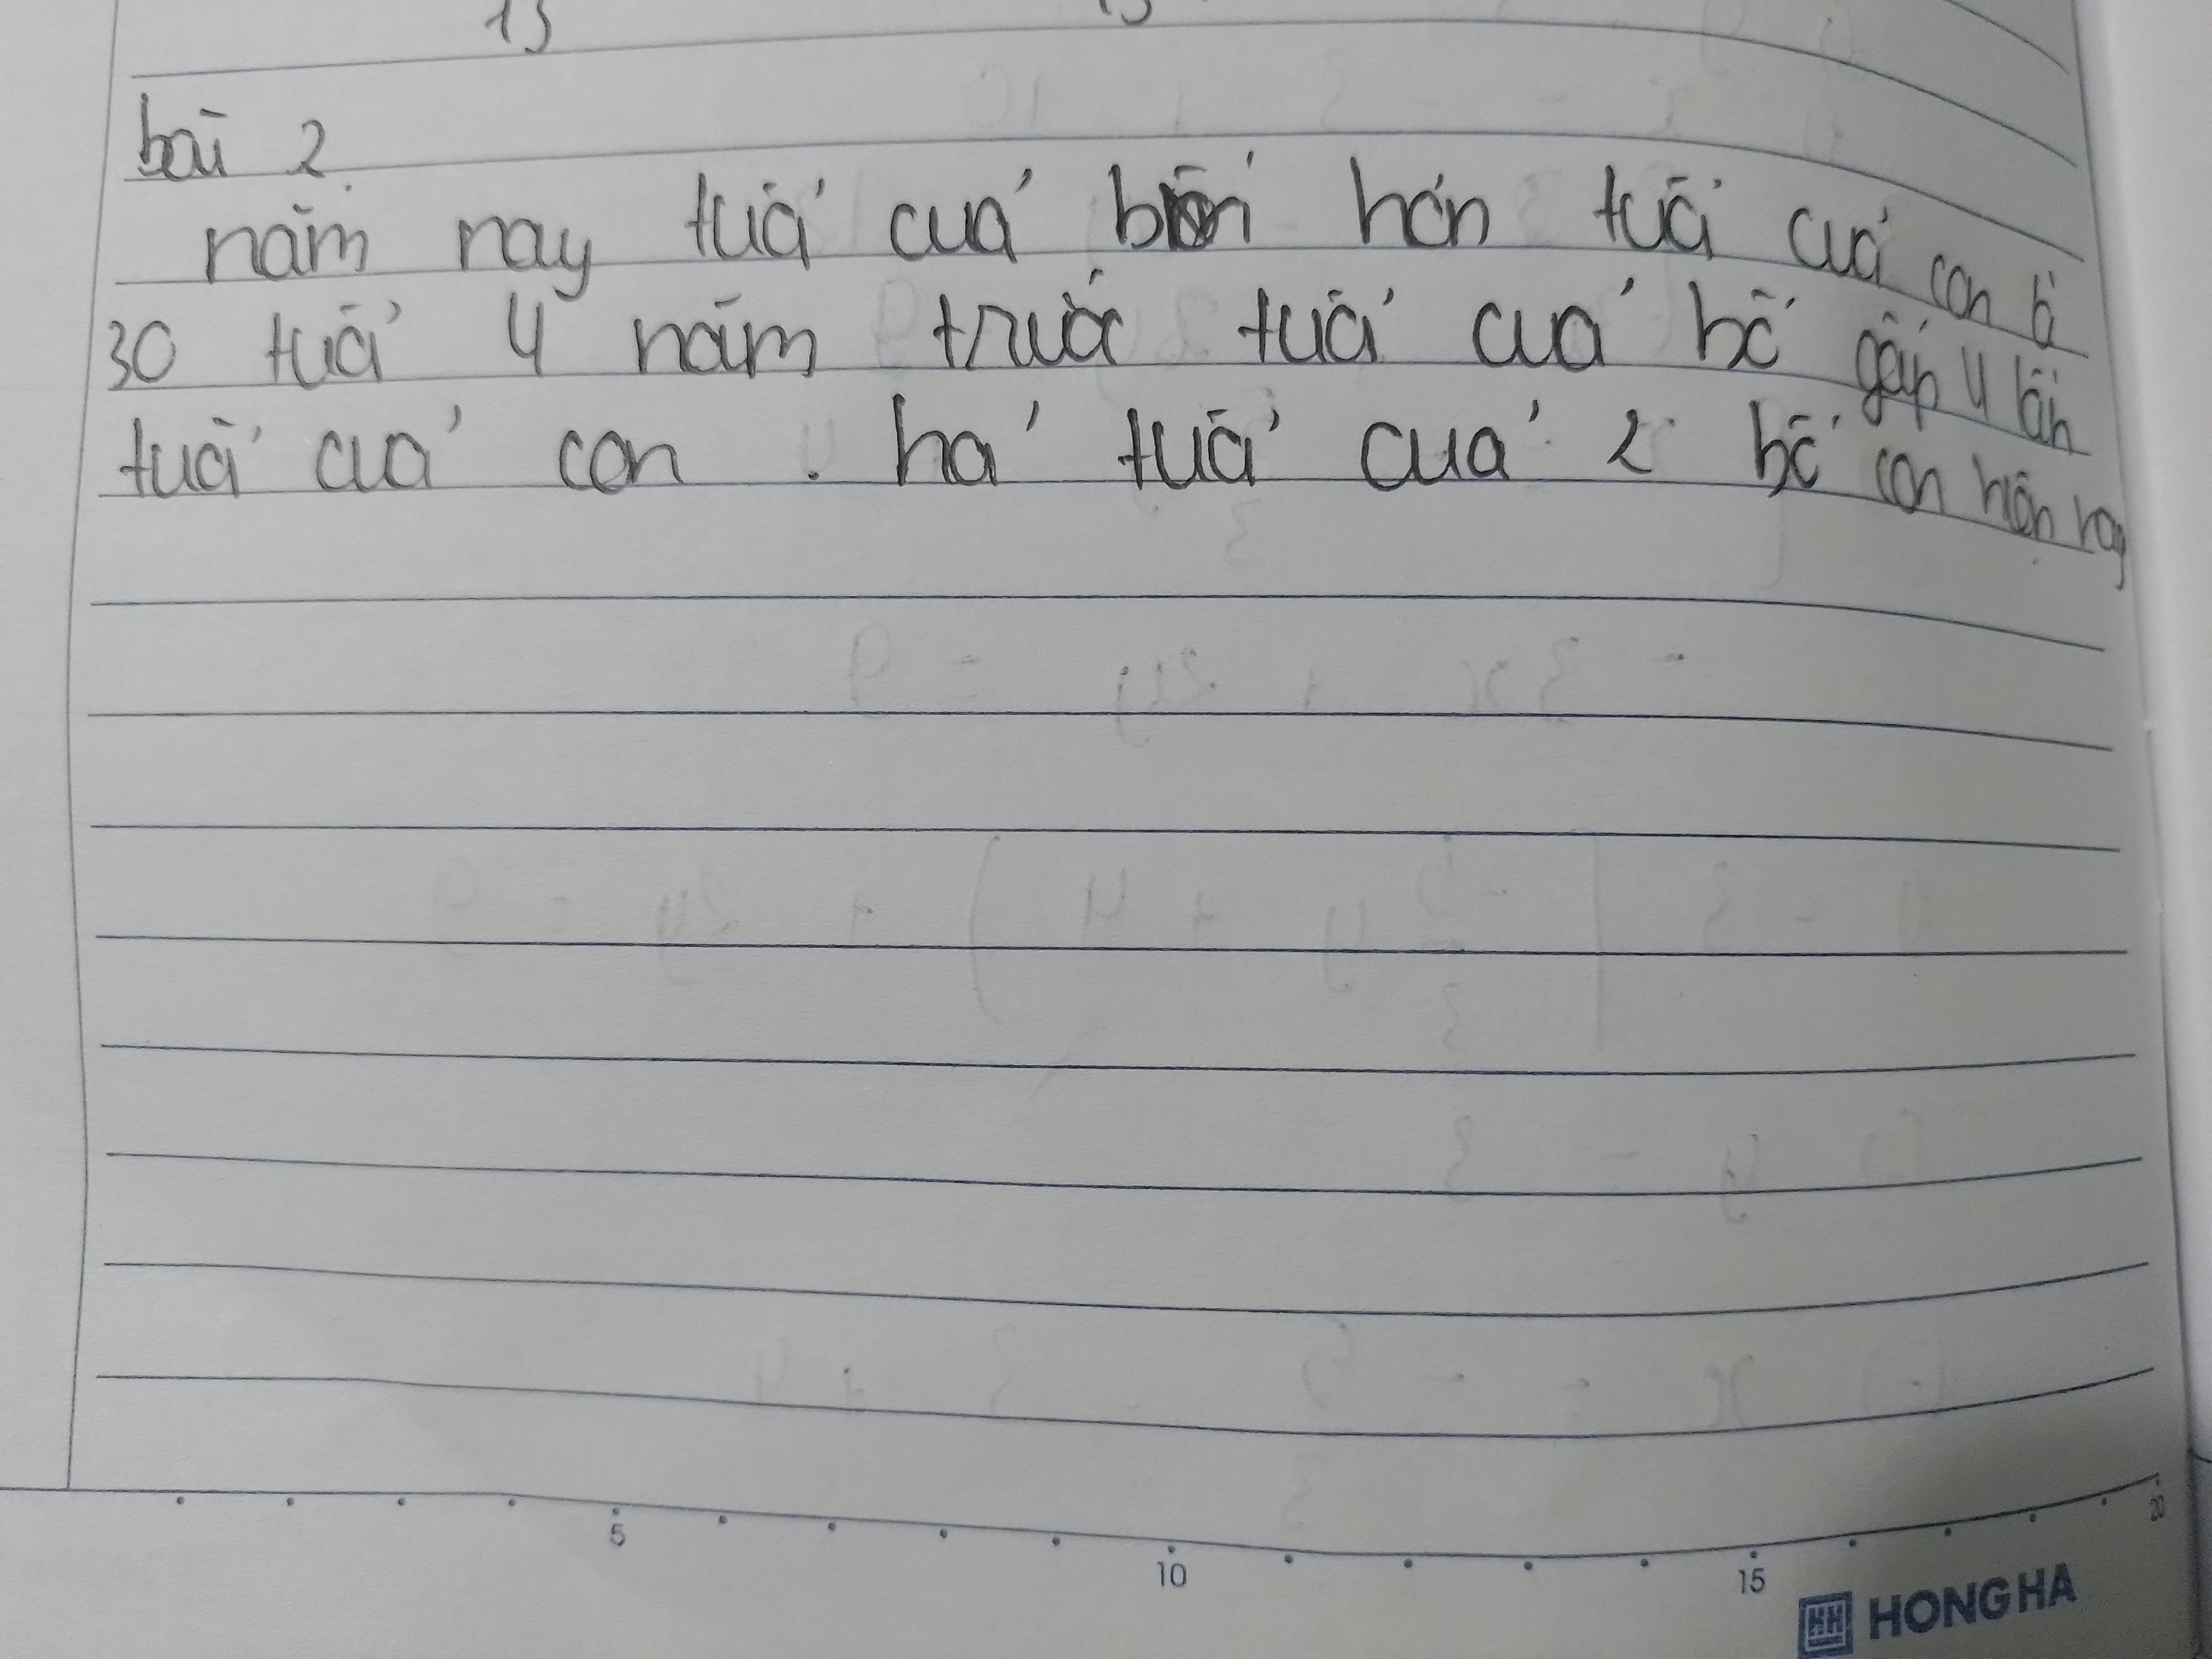 bài 2
năm nay tuổi của bố hơn tuổi của con là
30 tuổi 4 năm trước tuổi của bố gấp 4 lần
tuổi của con . hỏi tuổi của 2 bố con hiện nay
5 10 15 20
HH HONG HA